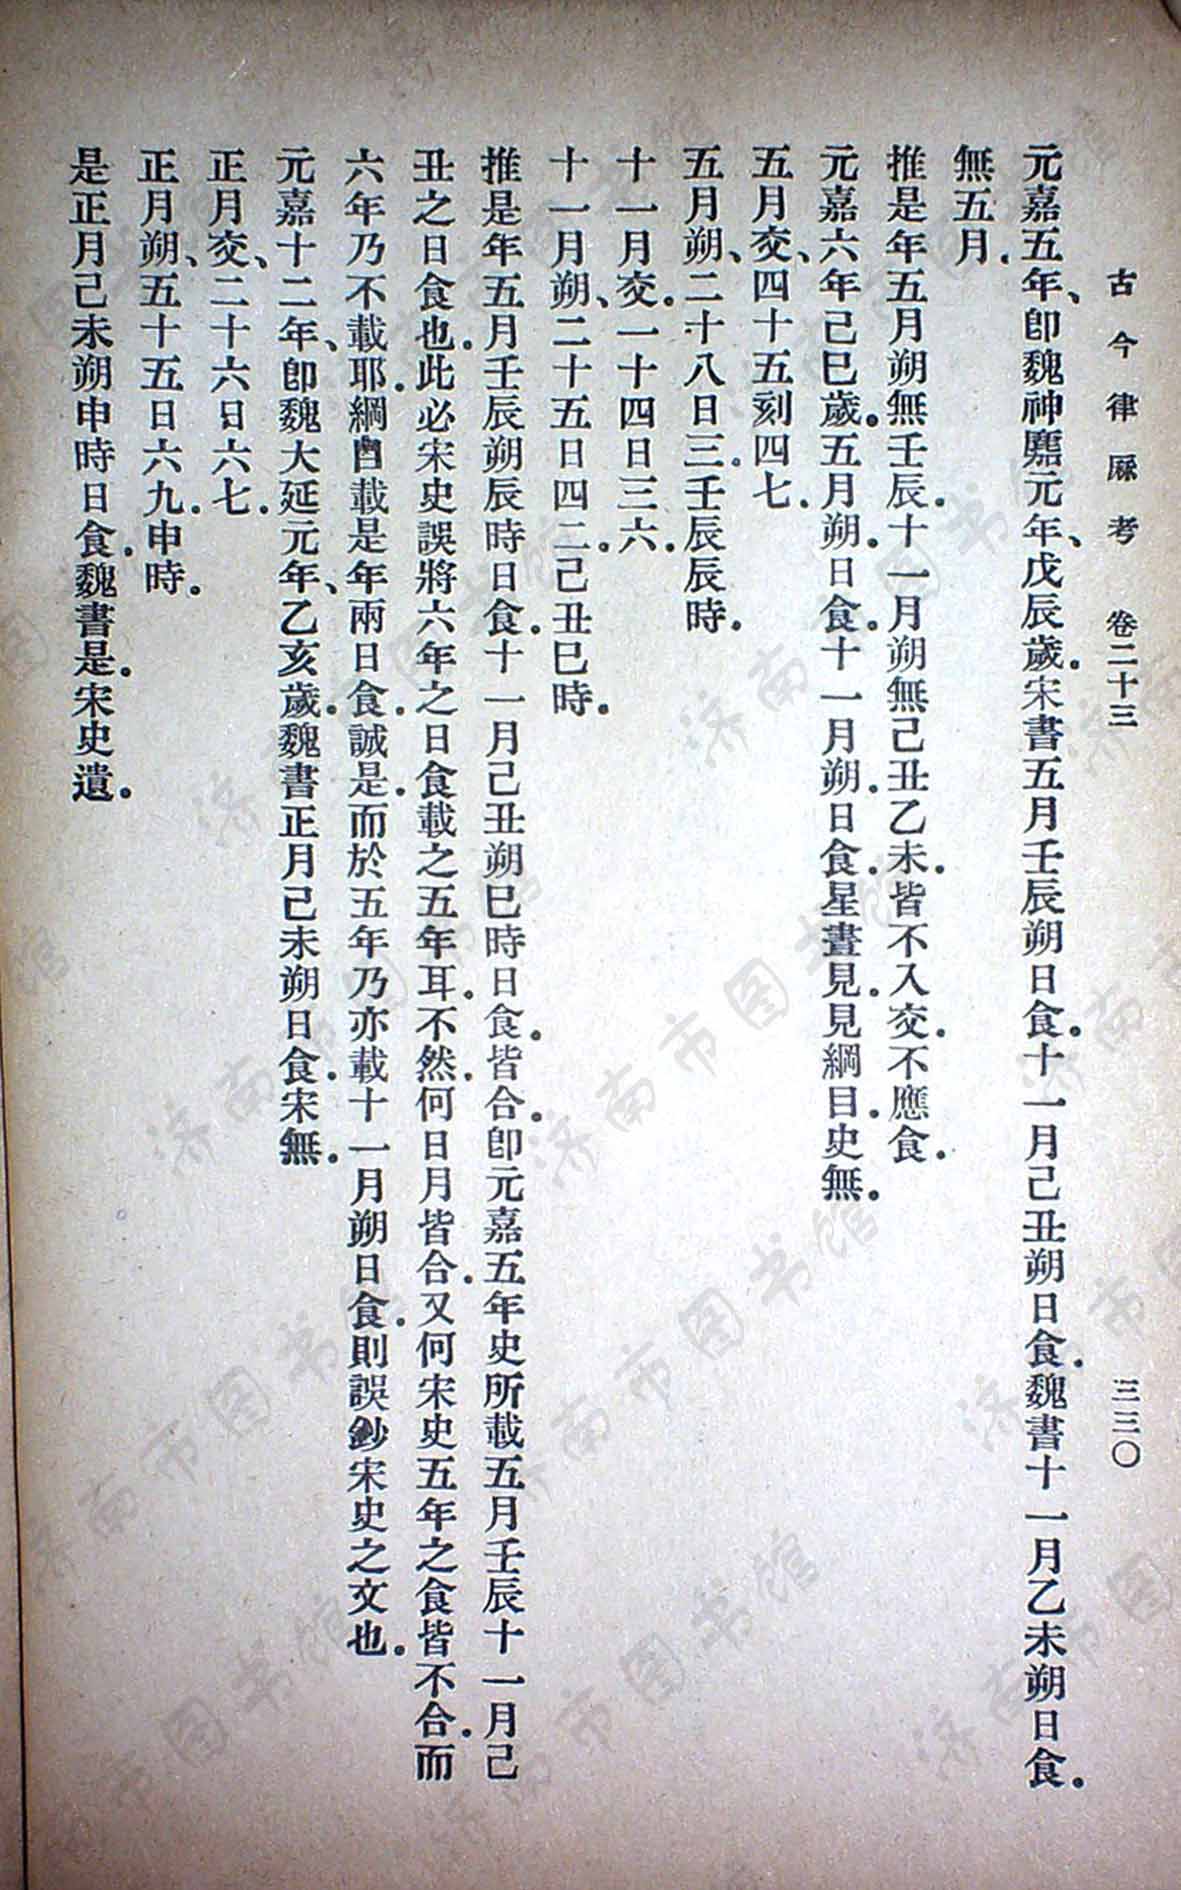 古今律厤考 卷二十三 三三〇
元嘉五年、卽魏神䴥元年、戊辰歲。宋書五月壬辰朔日食。十一月己丑朔日食。魏書十一月乙未朔日食。
無五月。
推是年五月朔無壬辰。十一月朔無己丑乙未。皆不入交。不應食。
元嘉六年己巳歲。五月朔。日食。十一月朔。日食。星晝見。見綱目。史無。
五月交、四十五刻四七。
五月朔、二十八日三。壬辰辰時。
十一月交。一十四日三六。
十一月朔、二十五日四二。己丑巳時。
推是年五月壬辰朔辰時日食。十一月己丑朔巳時日食。皆合。卽元嘉五年史所載五月壬辰十一月己
丑之日食也。此必宋史誤將六年之日食載之五年耳。不然。何日月皆合。又何宋史五年之食皆不合。而
六年乃不載耶。綱目載是年兩日食。誠是。而於五年乃亦載十一月朔日食。則誤鈔宋史之文也。
元嘉十二年、卽魏大延元年、乙亥歲。魏書正月己未朔日食。宋無。
正月交、二十六日六七。
正月朔、五十五日六九。申時。
是正月己未朔申時日食。魏書是。宋史遺。
济南市图书馆